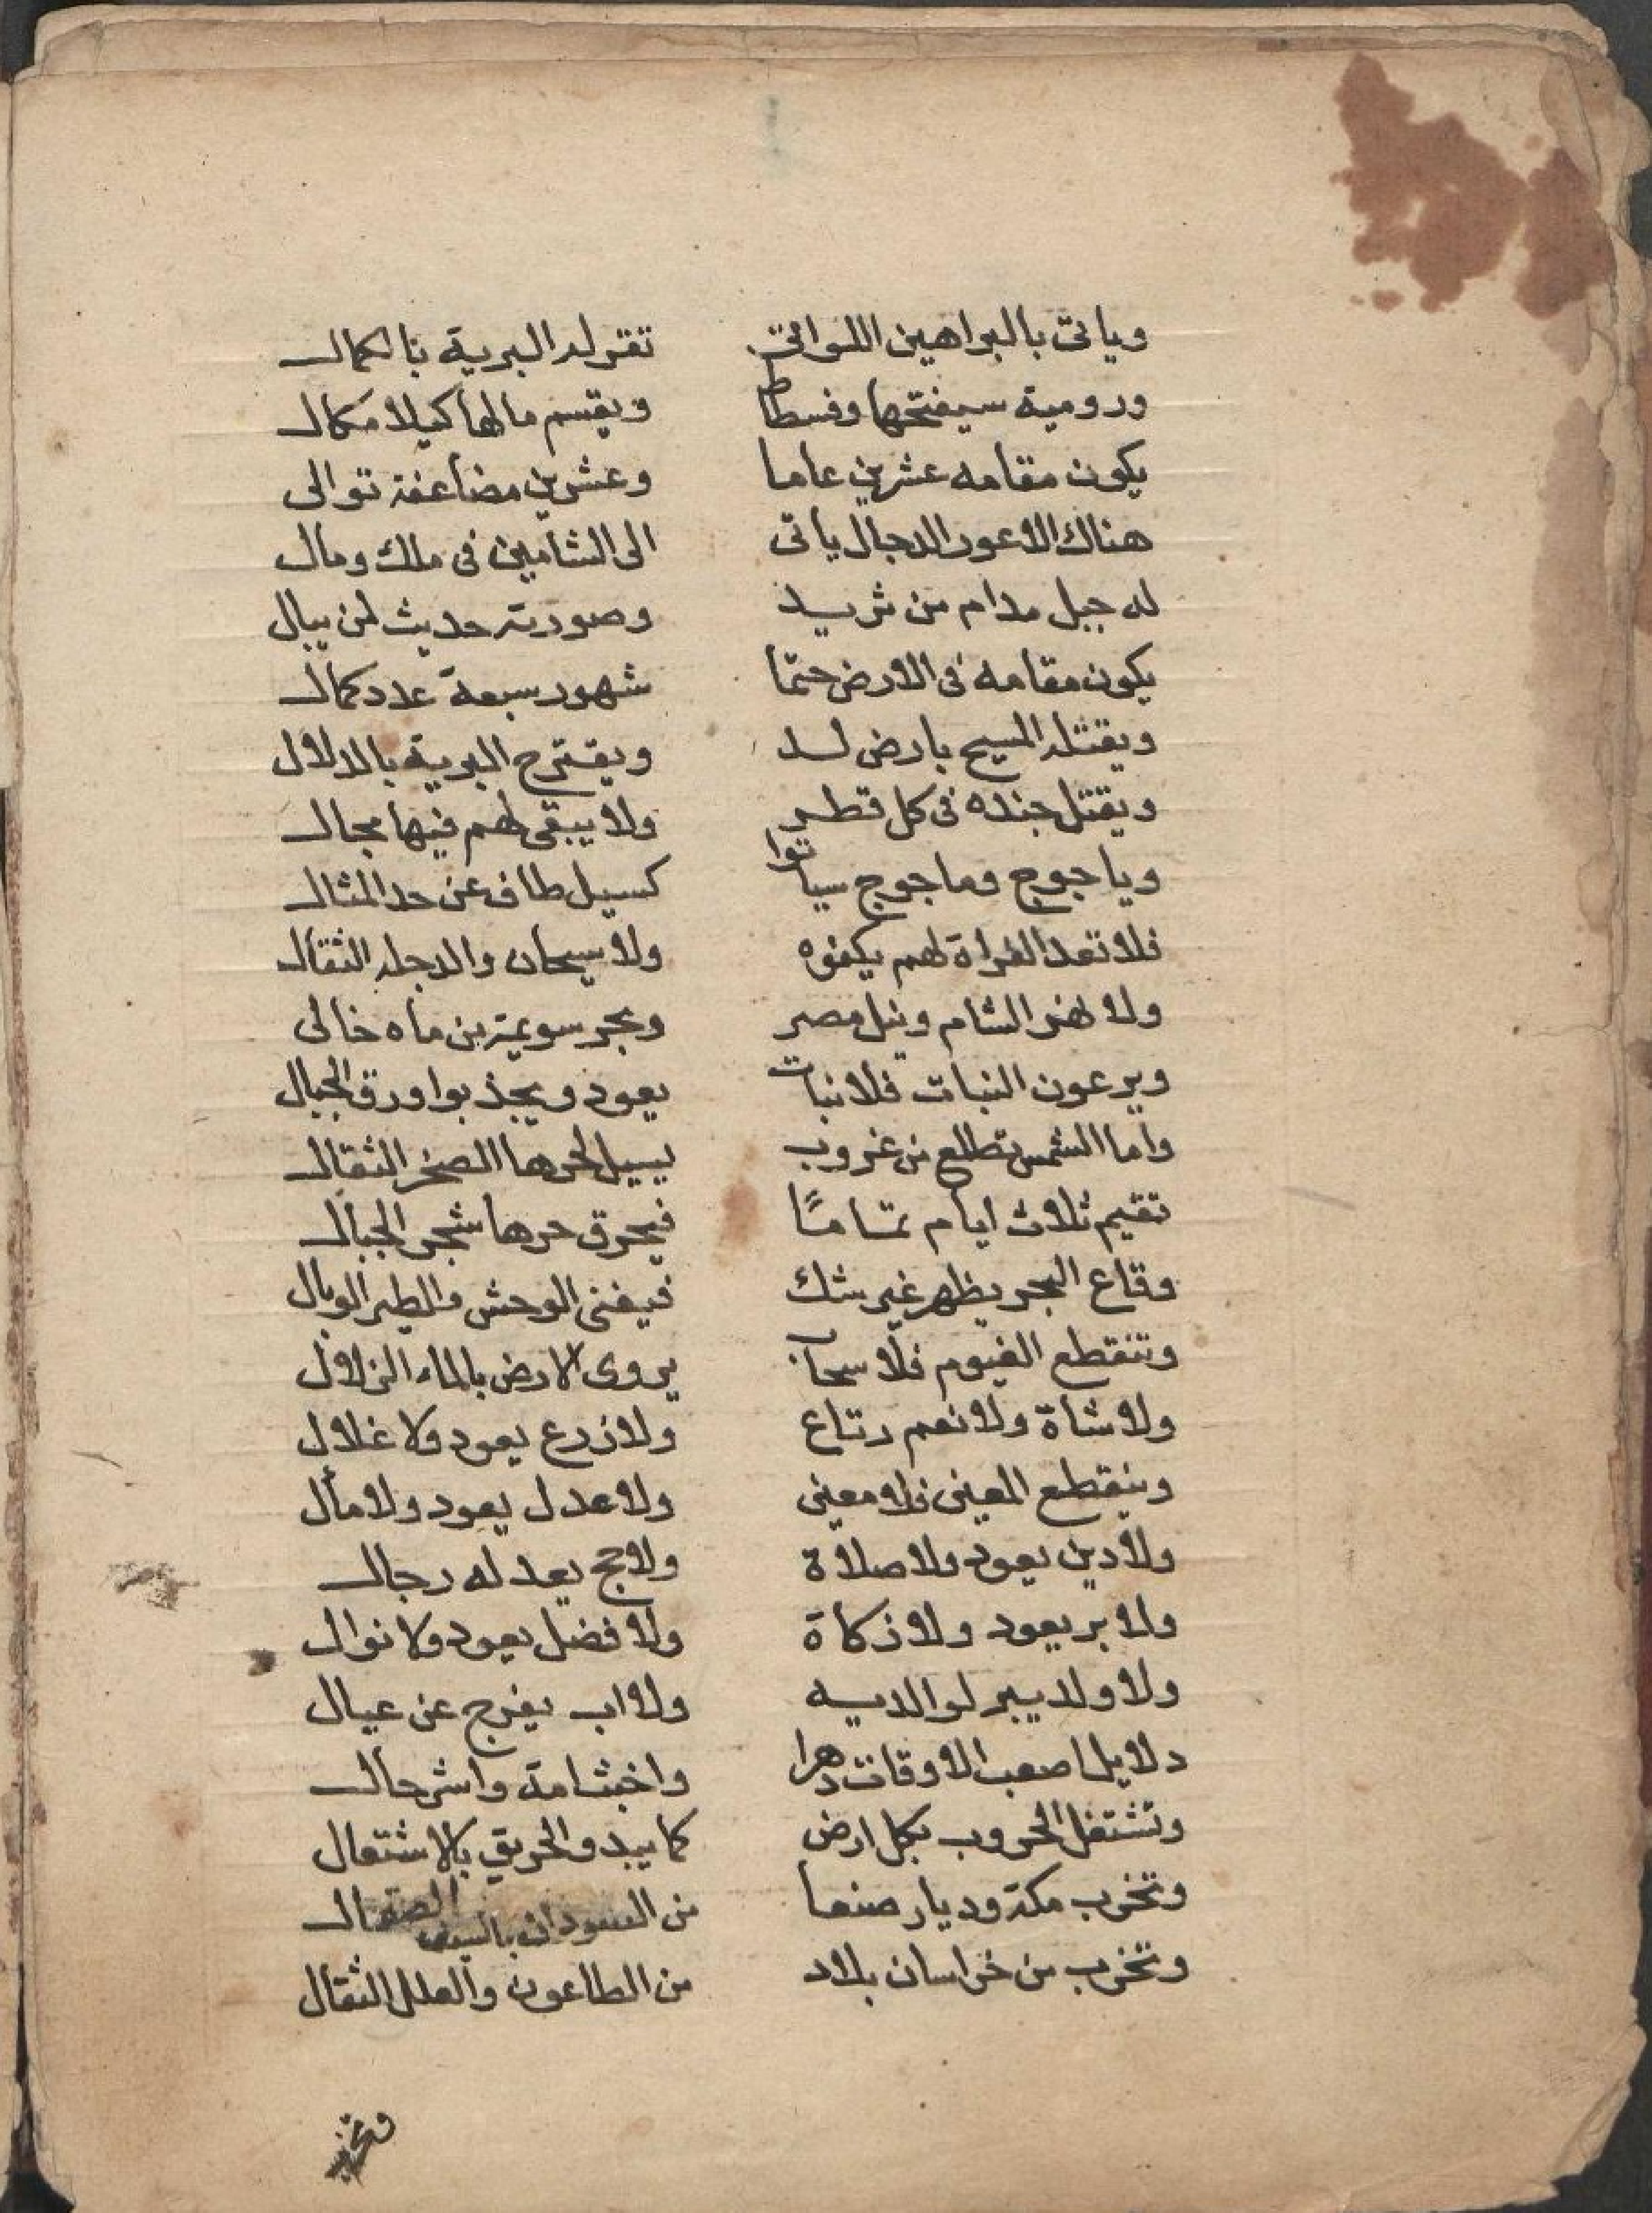 وياتى بالبراهين اللواتى تقر له البرية بالكمال
ورومية سيفتحها وفسطاط ويقسم مالها كيلا مكال
يكون مقامه عشرين عاما وعشرين مضاعفة توالى
هناك الاعور الدجال ياتى الى الشامين فى ملك ومال
له جبل مدام من ثريد وصورته حديث لمن يبال
يكون مقامه فى الارض حتما شهور سبعة عدد كمال
ويقتله المسيح بارض لد ويقترح البرية بالدلال
ويقتل جنده فى كل قطر ولا يبقى لهم فيها مجال
وياجوج وماجوج سياتوا كسيل طاف عن حد المثال
فلا تعد الفراة لهم يكفوه ولا سيحان والدجله الثقال
ولا نهر الشام ونيل مصر وبحر سويمة من ماه خالى
ويرعون النبات فلا نبات يعود ويجذبوا ورق الجبال
واما الشمس تطلع من غروب يسيل لحرها الصخر الثقال
تقيم ثلاث ايام تماماً فيحرق حرها شجر الجبال
وقاع البحر يظهر غير شك فيفنى الوحش والطير الوبال
وتنقطع الغيوم فلا سحاب يروى الارض بالماء الزلال
ولا شاة ولا نعم رتاع ولا زرع يعود ولا غلال
وينقطع المعين فلا معين ولا عدل يعود ولا مال
ولا دين يعود ولا صلاة ولا حج يعد له رجال
ولا بر يعود ولا زكاة ولا فضل يعود ولا نوال
ولا ولد يبر لوالديه ولا اب يفرج عن عيال
دلايل اصعب الاوقات دهرا واخبث امة واشر حال
وتشتغل الحروب بكل ارض كما يبدو الحريق بالاشتعال
وتخرب مكة وديار صنعا من السودان بالسيف الصقال
وتخرب من خراسان بلاد من الطاعون والعلل الثقال